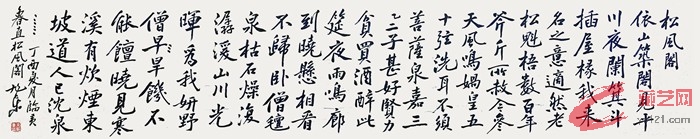 松風閣
依山築閣見平
川夜闌箕斗
插屋椽我來
名之意適然老
松魁梧數百年
斧斤所赦令參
天風鳴媧皇五
十弦洗耳不須
菩薩泉嘉三
二子甚好賢力
貧買酒醉此
筵夜雨鳴廊
到曉懸相看
不歸臥僧氈
泉枯石燥復
潺湲山川光
暉為我妍野
僧旱旱饑不
能饘曉見寒
溪有炊煙東
坡道人已沈泉
丁酉
春直松風閣